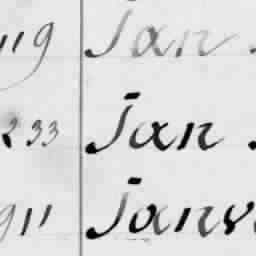 119 Jan
233 Jan
911 Janv